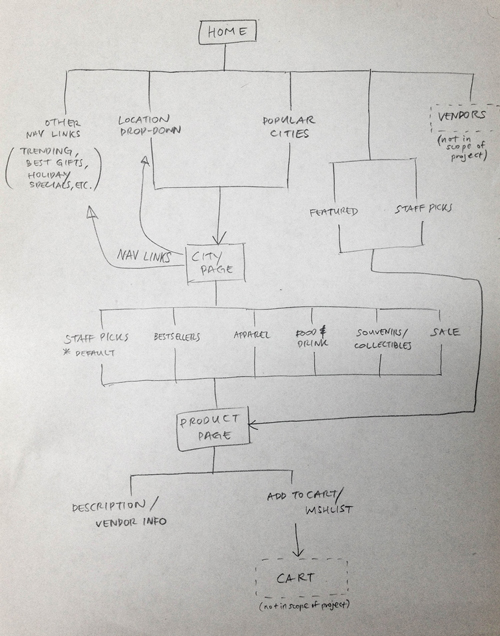 HOME
OTHER
NAV LINKS
(TRENDING,
BEST GIFTS,
HOLIDAY
SPECIALS, ETC.)
LOCATION
DROP-DOWN
POPULAR
CITIES
VENDORS
(not in
scope of
project)
FEATURED
STAFF PICKS
NAV LINKS
CITY
PAGE
STAFF PICKS
* DEFAULT
BESTSELLERS
APPAREL
FOOD &
DRINK
SOUVENIRS/
COLLECTIBLES
SALE
PRODUCT
PAGE
DESCRIPTION/
VENDOR INFO
ADD TO CART/
WISHLIST
CART
(not in scope of project)